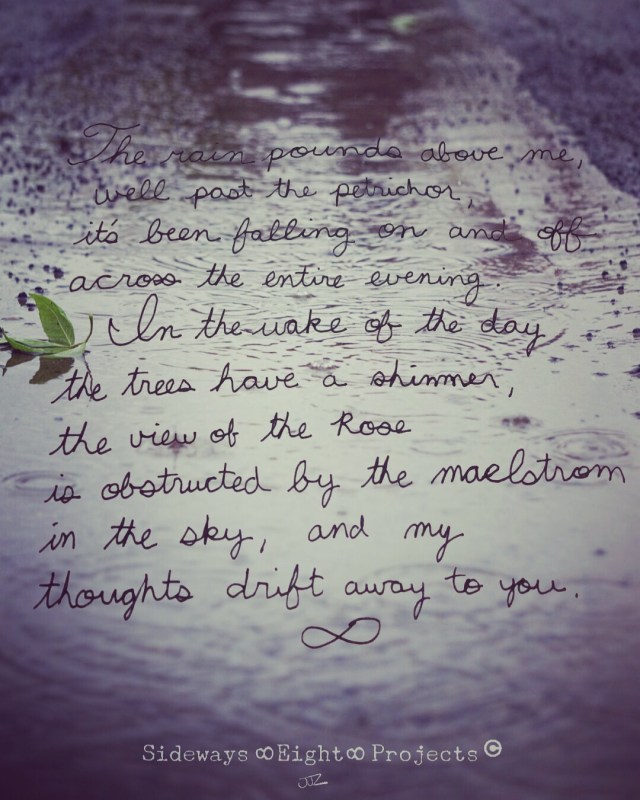 The rain pounds above me,
well past the petrichor,
it's been falling on and off
across the entire evening.
In the wake of the day
the trees have a shimmer,
the view of the Rose
is obstructed by the maelstrom
in the sky, and my
thoughts drift away to you.
∞
Sideways ∞Eight∞ Projects ©
JJZ